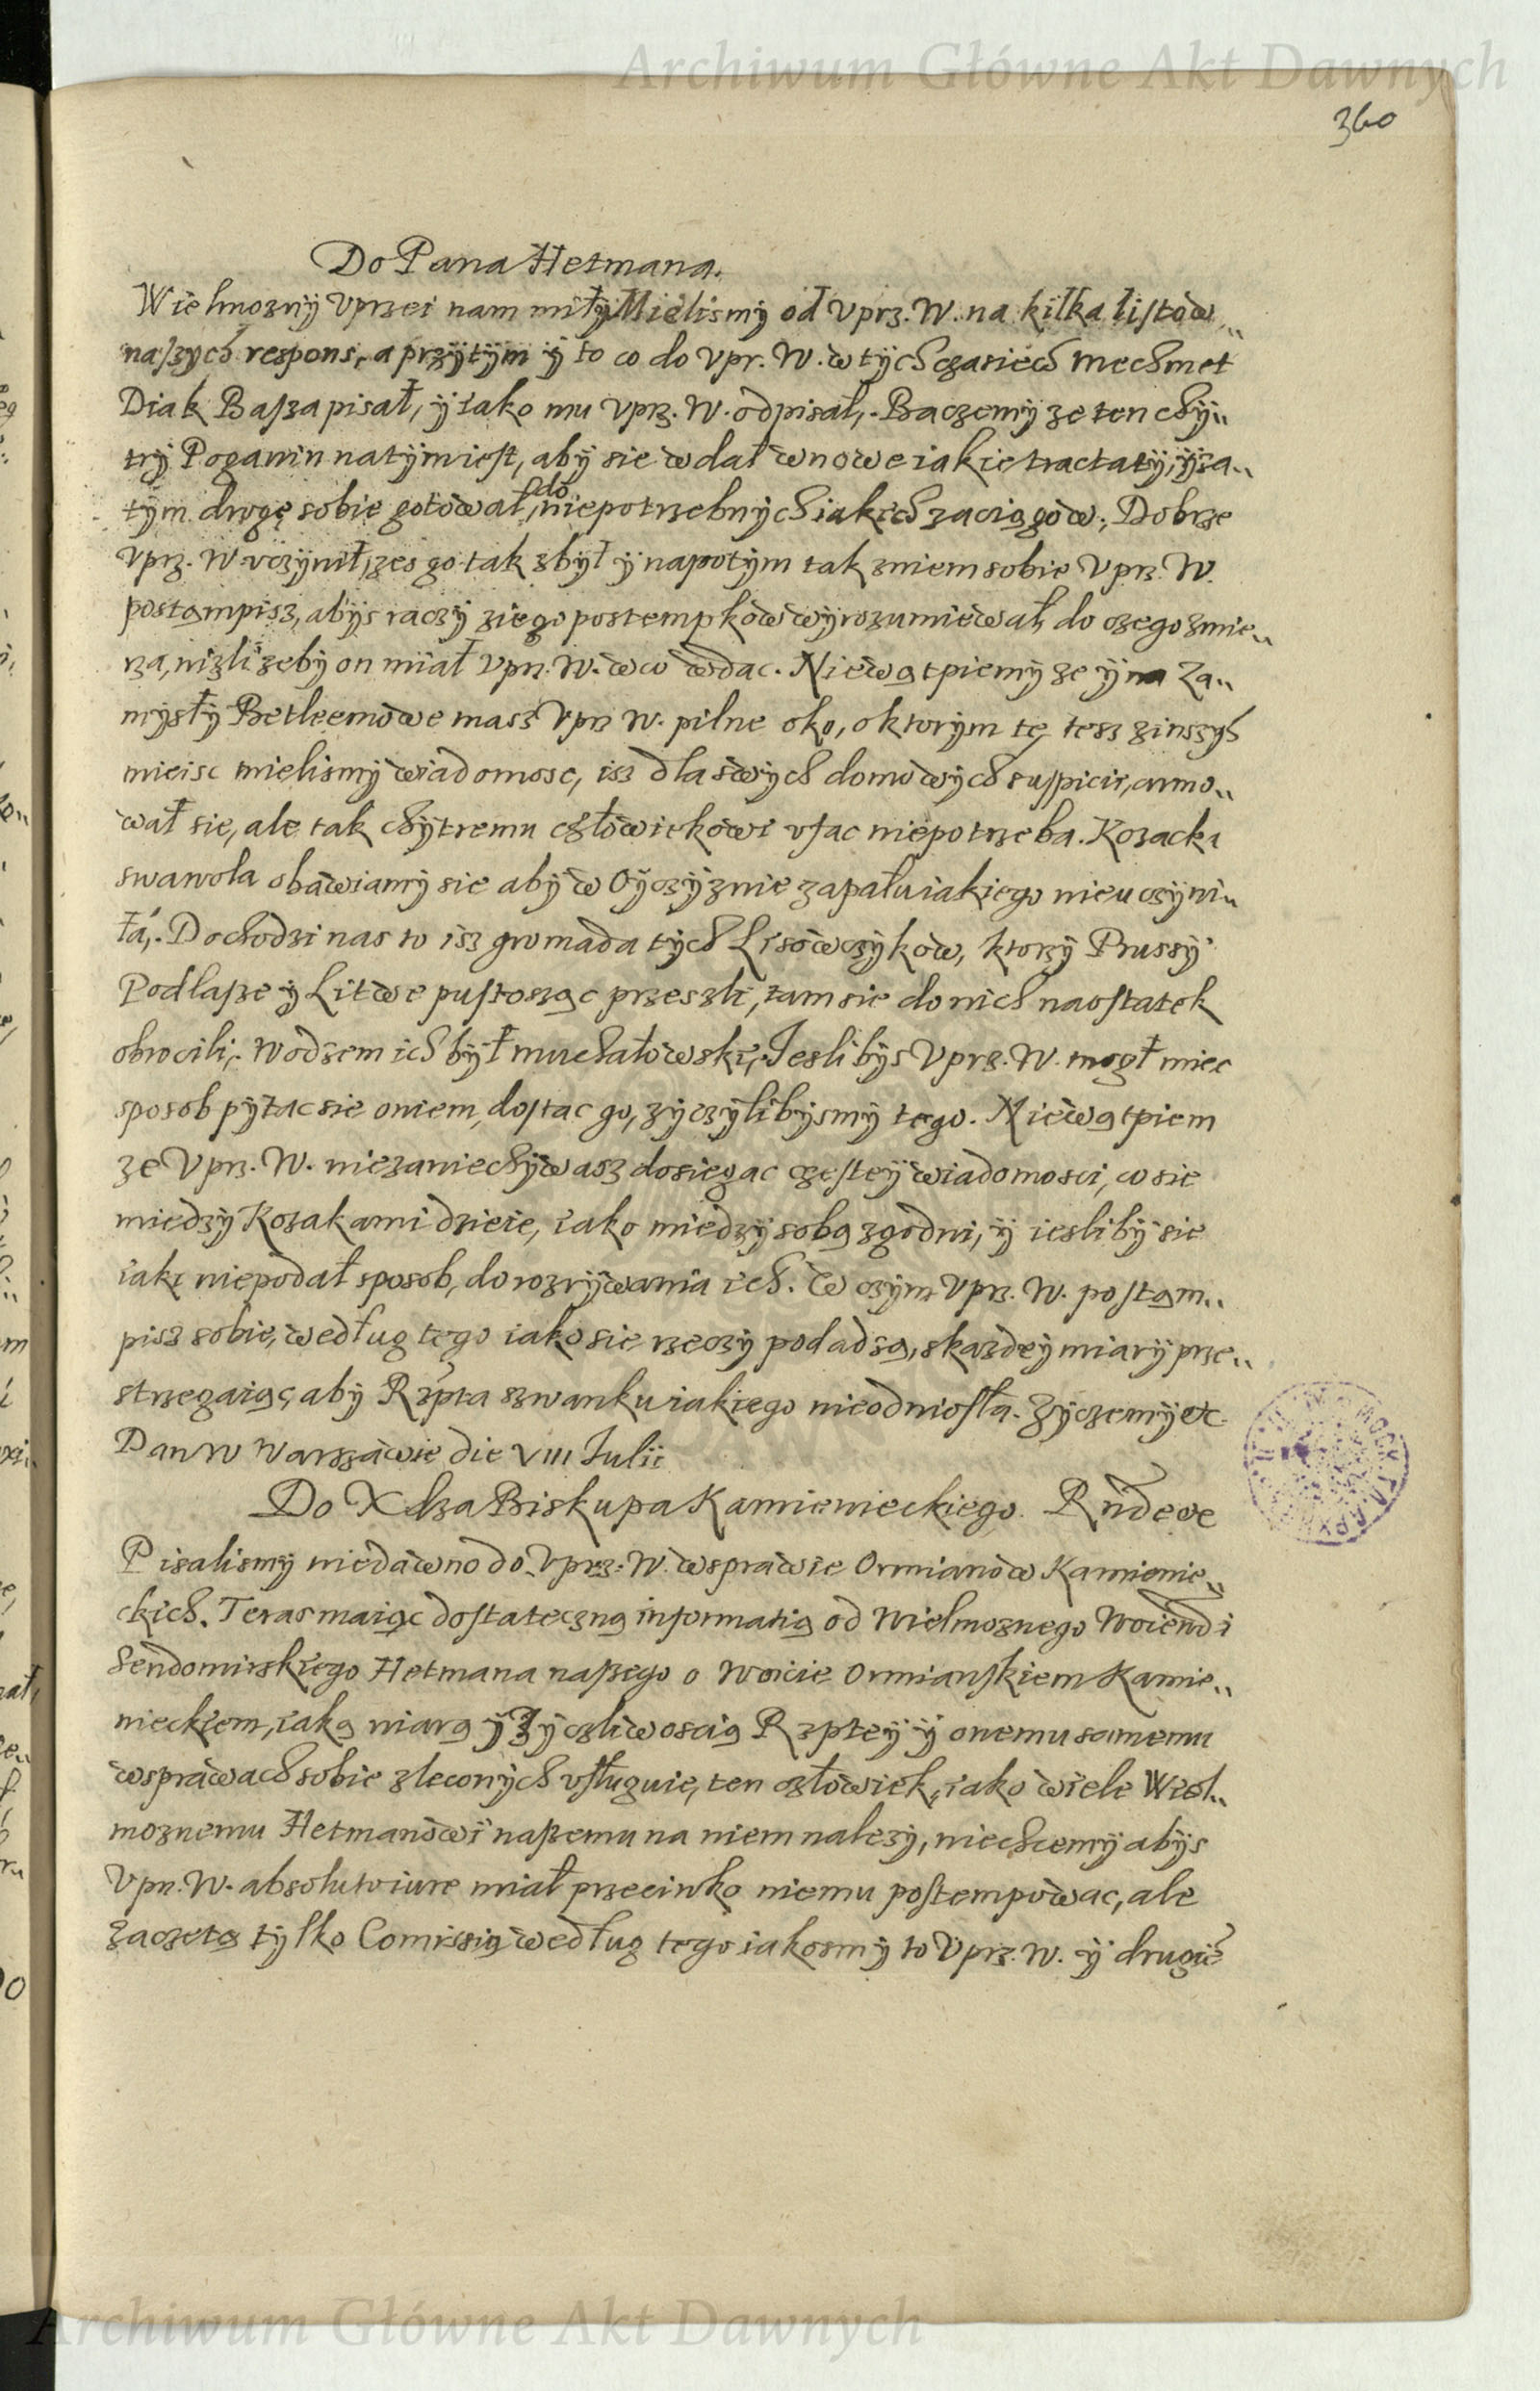 Archiwum Główne Akt Dawnych
360
Do Pana Hetmana.
Wielmozny Vprzei nam miły Mielismy od Vprz. W. na kilka listow
naszych respons, a przytym y to co do Vpr. W. w tych czasiech Mechmet
Diak Basza pisał, y iako mu Vprz. W. odpisał. Baczemy ze ten chy-
try Poganin na tym iest, aby sie wdał w nowe iakie tractaty, y za-
tym drogę sobie gotował, do niepotrzebnych iakich zaciągow. Dobrze
Vprz. W. vczynił, zes go tak zbył y napotym tak z niem sobie Vprz. W.
postąmpisz, abys raczy z iego postempkow wyrozumiewał, do czego zmie-
rza, nizli zeby on miał Vprz. W. w co wdac. Niewątpiemy ze y na Za-
mysły Betleemowe masz Vprz W. pilne oko, o ktorym tę tesz z inszych
mieisc mielismy wiadomosc, isz dla swych domowych suspicii, armo-
wał sie, ale tak chytremu człowiekowi vfac niepotrzeba. Kozacka
swawola obawiamy sie aby w Oyczyznie zapału iakiego nie uczyni-
ła. Dochodzi nas to isz gromada tych Lisowczykow, ktorzy Prussy
Podlasze y Litwe pustosząc przeszli, tam sie do nich naostatek
obrocili, Wodzem ich był Muchałowski, Iesli bys Vprz. W. mogł miec
sposob pytac sie o niem, dostac go, zyczylibysmy tego. Niewątpiem
ze Vprz. W. niezaniechywasz dosiegac częstey wiadomosci, co sie
miedzy Kozakami dzieie, iako miedzy sobą zgodni, y iesliby sie
iaki niepodał sposob, do rozrywania ich. W czym Vprz. W. postąm-
pisz sobie, według tego iako sie rzeczy podadzą, s kazdey miary prze-
strzegaiąc, aby Rzpta szwanku iakiego nieodniosła. Zyczemy etc.
Dan w Warszawie die VIII Iulii
Do Xdza Biskupa Kamienieckiego. Rnde etc
Pisalismy niedawno do Vprz. W. w sprawie Ormianow Kamienie-
ckich. Teras maiąc dostateczną informatią od Wielmoznego Woiewdi
Sendomirskiego Hetmana naszego o Woicie Ormianskiem Kamie-
nieckiem, iaką wiarą y Zyczliwoscią Rzptey y onemu samemu
w sprawach sobie zleconych vsługuie, ten człowiek, iako wiele Wiel-
moznemu Hetmanowi naszemu na niem nalezy, niechcemy abys
Vprz. W. absoluto iure miał przeciwko niemu postempowac, ale
zaczętą tylko Comissią według tego iakosmy to Vprz. W. y drugie
Archiwum Główne Akt Dawnych